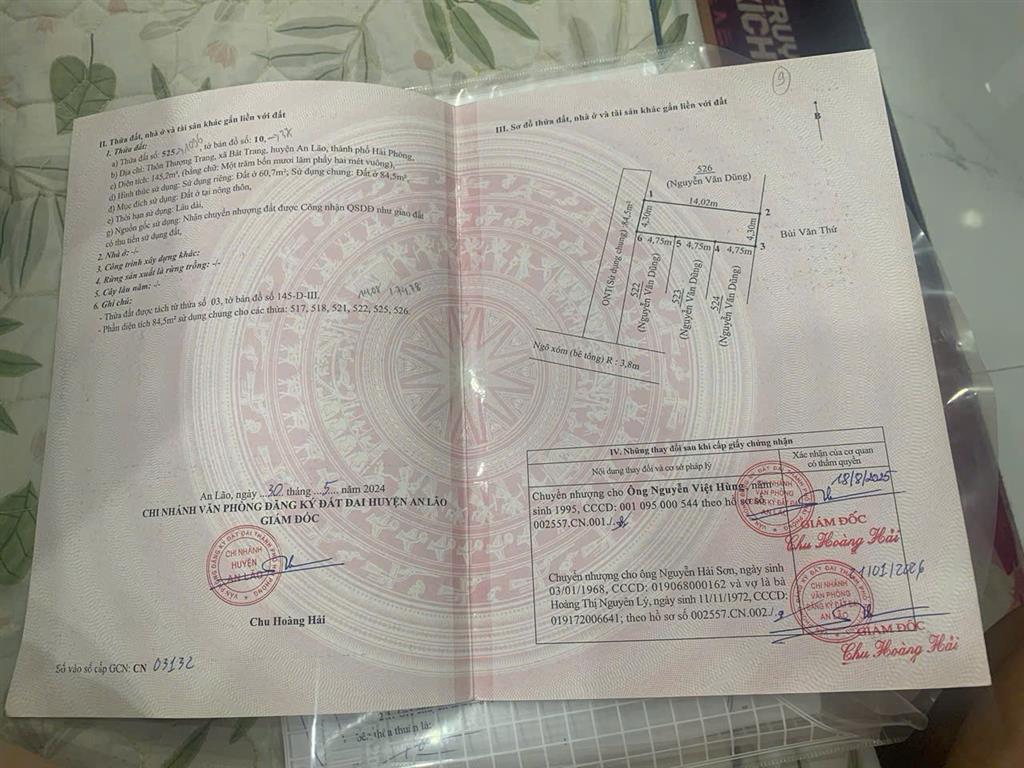 II. Thửa đất, nhà ở và tài sản khác gắn liền với đất
1. Thửa đất:
a) Thửa đất số: 525, tờ bản đồ số: 10,
b) Địa chỉ: Thôn Thượng Trang, xã Bát Trang, huyện An Lão, thành phố Hải Phòng,
c) Diện tích: 145,2m², (bằng chữ: Một trăm bốn mươi lăm phẩy hai mét vuông),
d) Hình thức sử dụng: Sử dụng riêng: Đất ở 60,7m²; Sử dụng chung: Đất ở 84,5m²,
đ) Mục đích sử dụng: Đất ở tại nông thôn,
e) Thời hạn sử dụng: Lâu dài,
g) Nguồn gốc sử dụng: Nhận chuyển nhượng đất được Công nhận QSDĐ như giao đất
có thu tiền sử dụng đất,
2. Nhà ở: -/-
3. Công trình xây dựng khác:
4. Rừng sản xuất là rừng trồng: -/-
5. Cây lâu năm: -/-
6. Ghi chú:
- Thửa đất được tách từ thửa số 03, tờ bản đồ số 145-D-III.
- Phần diện tích 84,5m² sử dụng chung cho các thửa: 517, 518, 521, 522, 525, 526.
An Lão, ngày 30 tháng 5 năm 2024
CHI NHÁNH VĂN PHÒNG ĐĂNG KÝ ĐẤT ĐAI HUYỆN AN LÃO
GIÁM ĐỐC
CHI NHÁNH
HUYỆN
AN LÃO
Chu Hoàng Hải
Số vào sổ cấp GCN: CN 03132
9
III. Sơ đồ thửa đất, nhà ở và tài sản khác gắn liền với đất
B
526
(Nguyễn Văn Dũng)
1
14,02m
2
4,30m
4,30m
Bùi Văn Thứ
6 4,75m 5 4,75m 4 4,75m 3
ONT(Sử dụng chung) :84,5m²
522
(Nguyễn Văn Dũng)
523
(Nguyễn Văn Dũng)
524
(Nguyễn Văn Dũng)
Ngõ xóm (bê tông) R : 3,8m
IV. Những thay đổi sau khi cấp giấy chứng nhận
Nội dung thay đổi và cơ sở pháp lý
Xác nhận của cơ quan
có thẩm quyền
Chuyển nhượng cho Ông Nguyễn Việt Hùng, năm
sinh 1995, CCCD: 001 095 000 544 theo hồ sơ số
002557.CN.001./.
18/8/2025
CHI NHÁNH
VĂN PHÒNG
ĐĂNG KÝ ĐẤT ĐAI
AN LÃO
GIÁM ĐỐC
Chu Hoàng Hải
Chuyển nhượng cho ông Nguyễn Hải Sơn, ngày sinh
03/01/1968, CCCD: 019068000162 và vợ là bà
Hoàng Thị Nguyên Lý, ngày sinh 11/11/1972, CCCD:
019172006641; theo hồ sơ số 002557.CN.002./.
/01/2026
CHI NHÁNH
VĂN PHÒNG
ĐĂNG KÝ ĐẤT ĐAI
AN LÃO
GIÁM ĐỐC
Chu Hoàng Hải